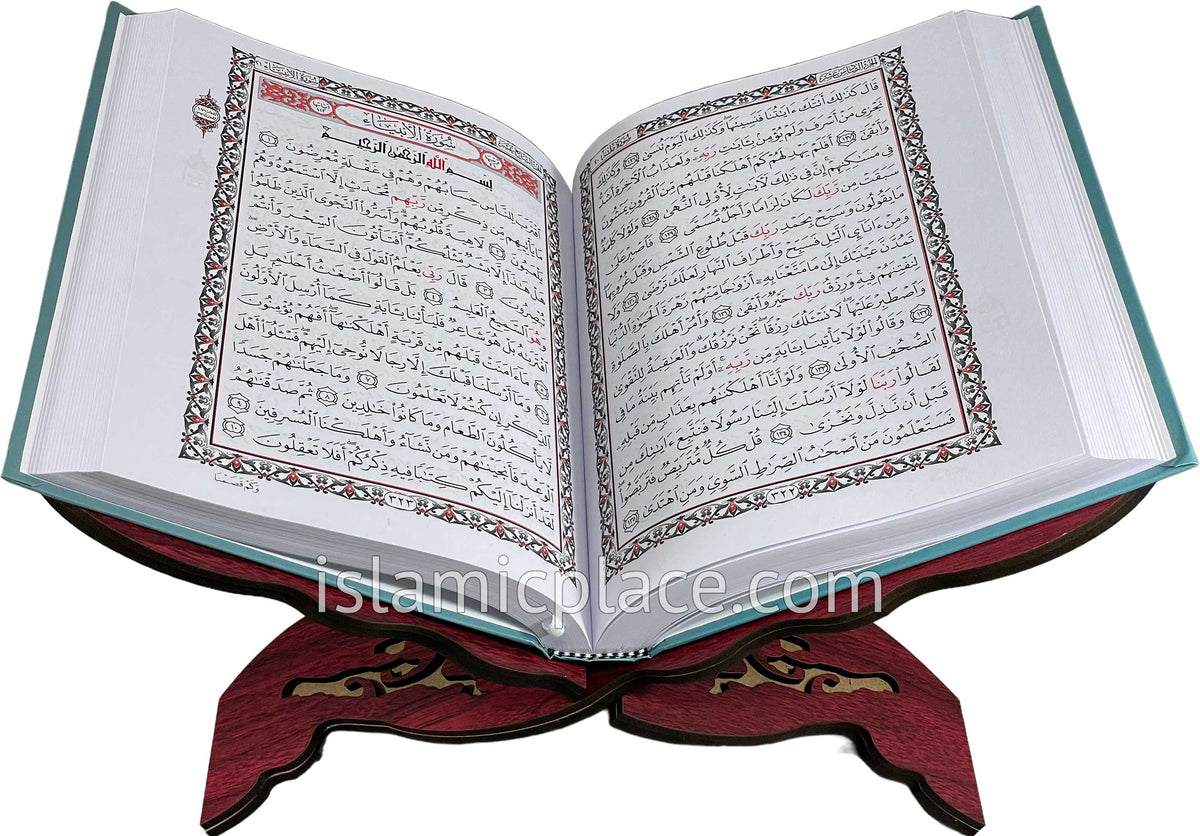 الجزء السادس عشر
سورة طه
قَالَ كَذَٰلِكَ أَتَتْكَ ءَايَٰتُنَا فَنَسِيتَهَا وَكَذَٰلِكَ ٱلْيَوْمَ تُنسَىٰ ١٢٦ وَكَذَٰلِكَ
نَجْزِى مَنْ أَسْرَفَ وَلَمْ يُؤْمِنۢ بِـَٔايَٰتِ رَبِّهِۦ وَلَعَذَابُ ٱلْءَاخِرَةِ أَشَدُّ
وَأَبْقَىٰٓ ١٢٧ أَفَلَمْ يَهْدِ لَهُمْ كَمْ أَهْلَكْنَا قَبْلَهُم مِّنَ ٱلْقُرُونِ يَمْشُونَ
فِى مَسَٰكِنِهِمْ إِنَّ فِى ذَٰلِكَ لَءَايَٰتٍ لِّأُو۟لِى ٱلنُّهَىٰ ١٢٨ وَلَوْلَا كَلِمَةٌ
سَبَقَتْ مِن رَّبِّكَ لَكَانَ لِزَامًا وَأَجَلٌ مُّسَمًّى ١٢٩ فَٱصْبِرْ عَلَىٰ
مَا يَقُولُونَ وَسَبِّحْ بِحَمْدِ رَبِّكَ قَبْلَ طُلُوعِ ٱلشَّمْسِ وَقَبْلَ غُرُوبِهَا
وَمِنْ ءَانَآئِ ٱلَّيْلِ فَسَبِّحْ وَأَطْرَافَ ٱلنَّهَارِ لَعَلَّكَ تَرْضَىٰ ١٣٠ وَلَا
تَمُدَّنَّ عَيْنَيْكَ إِلَىٰ مَا مَتَّعْنَا بِهِۦٓ أَزْوَٰجًا مِّنْهُمْ زَهْرَةَ ٱلْحَيَوٰةِ ٱلدُّنْيَا
لِنَفْتِنَهُمْ فِيهِ وَرِزْقُ رَبِّكَ خَيْرٌ وَأَبْقَىٰ ١٣١ وَأْمُرْ أَهْلَكَ بِٱلصَّلَوٰةِ
وَٱصْطَبِرْ عَلَيْهَا لَا نَسْـَٔلُكَ رِزْقًا نَّحْنُ نَرْزُقُكَ وَٱلْعَٰقِبَةُ لِلتَّقْوَىٰ
١٣٢ وَقَالُوا۟ لَوْلَا يَأْتِينَا بِـَٔايَةٍ مِّن رَّبِّهِۦٓ أَوَلَمْ تَأْتِهِم بَيِّنَةُ مَا فِى
ٱلصُّحُفِ ٱلْأُولَىٰ ١٣٣ وَلَوْ أَنَّآ أَهْلَكْنَٰهُم بِعَذَابٍ مِّن قَبْلِهِۦ
لَقَالُوا۟ رَبَّنَا لَوْلَآ أَرْسَلْتَ إِلَيْنَا رَسُولًا فَنَتَّبِعَ ءَايَٰتِكَ مِن
قَبْلِ أَن نَّذِلَّ وَنَخْزَىٰ ١٣٤ قُلْ كُلٌّ مُّتَرَبِّصٌ فَتَرَبَّصُوا۟
فَسَتَعْلَمُونَ مَنْ أَصْحَٰبُ ٱلصِّرَٰطِ ٱلسَّوِىِّ وَمَنِ ٱهْتَدَىٰ ١٣٥
٣٢٢
سورة الأنبياء
سُورَةُ الأَنبِيَاءِ
بِسْمِ ٱللَّهِ ٱلرَّحْمَٰنِ ٱلرَّحِيمِ
ٱقْتَرَبَ لِلنَّاسِ حِسَابُهُمْ وَهُمْ فِى غَفْلَةٍ مُّعْرِضُونَ ١
مَا يَأْتِيهِم مِّن ذِكْرٍ مِّن رَّبِّهِم مُّحْدَثٍ إِلَّا ٱسْتَمَعُوهُ وَهُمْ
يَلْعَبُونَ ٢ لَاهِيَةً قُلُوبُهُمْ وَأَسَرُّوا۟ ٱلنَّجْوَى ٱلَّذِينَ ظَلَمُوا۟
هَلْ هَٰذَآ إِلَّا بَشَرٌ مِّثْلُكُمْ أَفَتَأْتُونَ ٱلسِّحْرَ وَأَنتُمْ
تُبْصِرُونَ ٣ قَالَ رَبِّى يَعْلَمُ ٱلْقَوْلَ فِى ٱلسَّمَآءِ وَٱلْأَرْضِ
وَهُوَ ٱلسَّمِيعُ ٱلْعَلِيمُ ٤ بَلْ قَالُوٓا۟ أَضْغَٰثُ أَحْلَٰمٍۭ بَلِ
ٱفْتَرَىٰهُ بَلْ هُوَ شَاعِرٌ فَلْيَأْتِنَا بِـَٔايَةٍ كَمَآ أُرْسِلَ ٱلْأَوَّلُونَ
٥ مَآ ءَامَنَتْ قَبْلَهُم مِّن قَرْيَةٍ أَهْلَكْنَٰهَآ أَفَهُمْ يُؤْمِنُونَ
٦ وَمَآ أَرْسَلْنَا قَبْلَكَ إِلَّا رِجَالًا نُّوحِىٓ إِلَيْهِمْ فَسْـَٔلُوٓا۟ أَهْلَ
ٱلذِّكْرِ إِن كُنتُمْ لَا تَعْلَمُونَ ٧ وَمَا جَعَلْنَٰهُمْ جَسَدًا
لَّا يَأْكُلُونَ ٱلطَّعَامَ وَمَا كَانُوا۟ خَٰلِدِينَ ٨ ثُمَّ صَدَقْنَٰهُمُ
ٱلْوَعْدَ فَأَنجَيْنَٰهُمْ وَمَن نَّشَآءُ وَأَهْلَكْنَا ٱلْمُسْرِفِينَ ٩
لَقَدْ أَنزَلْنَآ إِلَيْكُمْ كِتَٰبًا فِيهِ ذِكْرُكُمْ أَفَلَا تَعْقِلُونَ ١٠
٣٢٣
وَكَمْ قَصَمْنَا
islamicplace.com